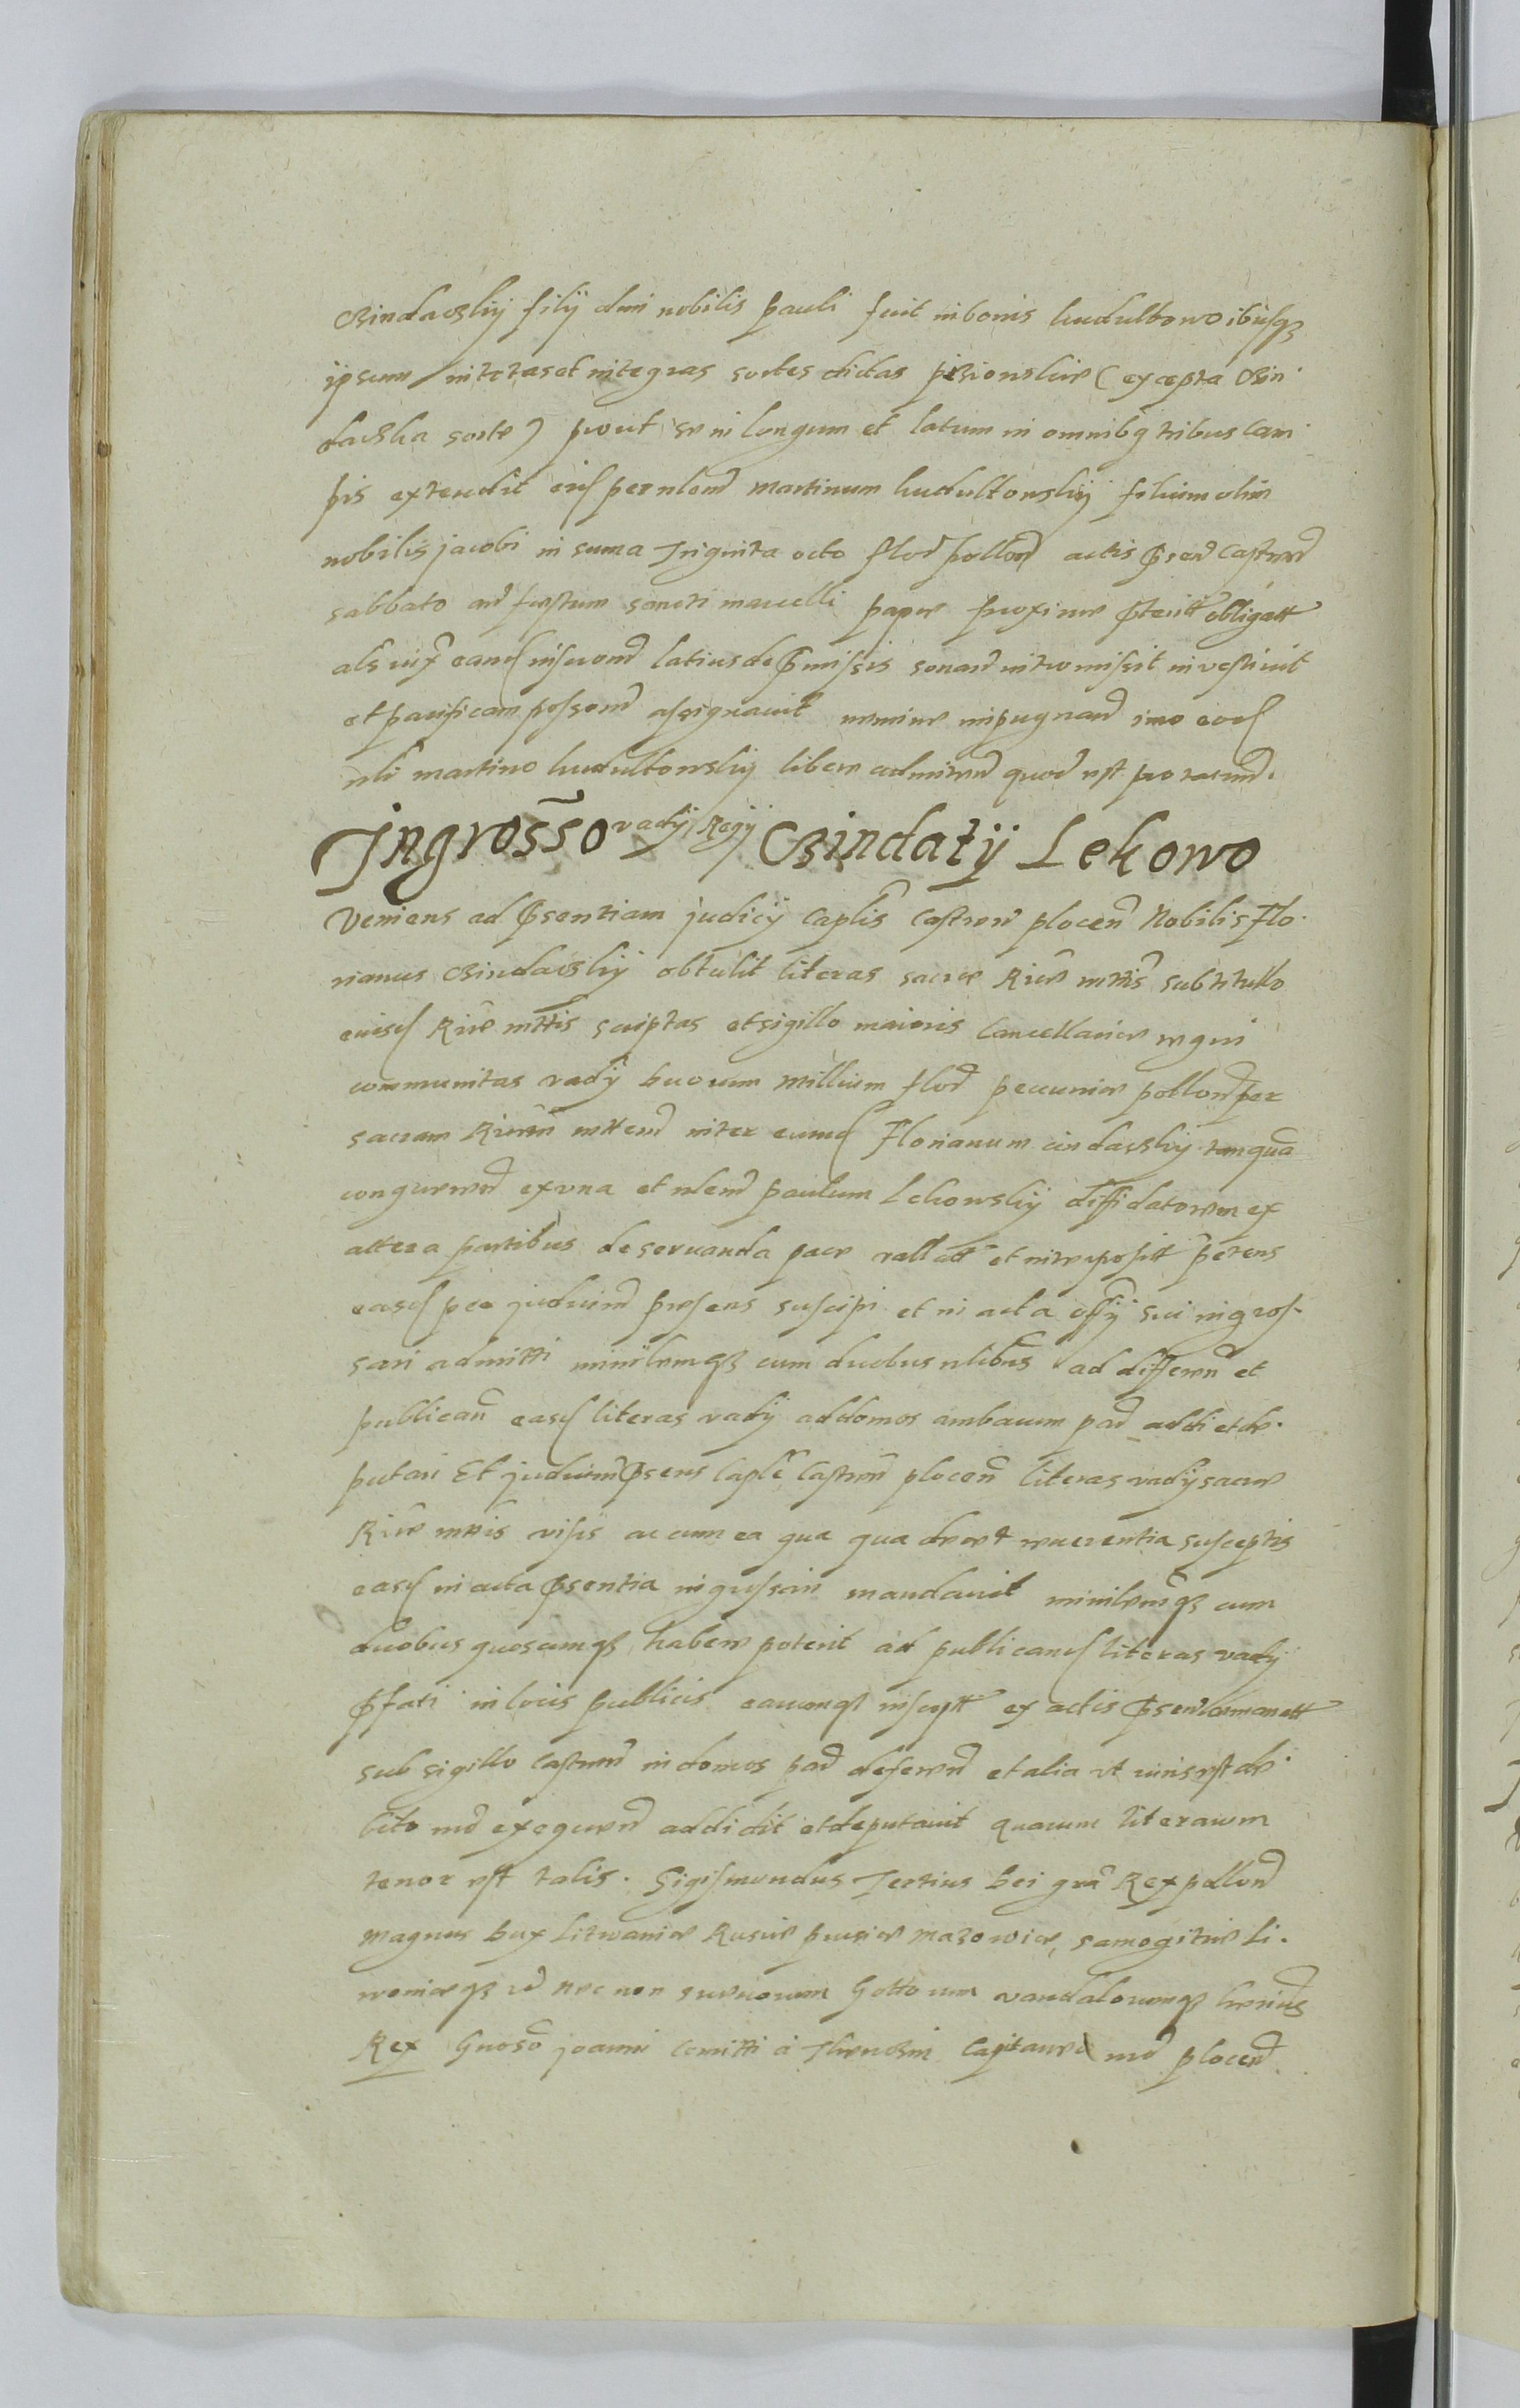 Czindaczkij filij dmi nobilis pauli fuit in bonis kudultowo ibusqз
ipsum in totas et integras sortes dictas (excepta Czin
daczka sorte) prout se in longum et latum in omnibq tribus cam
pis extendit per nlem martinum kudultowskij filium olim
nobilis jacobi in suma Triginta octo flor pollon actis psen castren
sabbato an festum sancti marcelli papae proxime pterit obligatt
als iux eand inscrond latius de pmissis sonan intromissit investivit
et pacificam possem assignauit nemine impugnan imo eod
nli martino kudultowskij libere admitten quod est pro memd.
Ingrosso vadij Regij Czindatij Lekowo
Veniens ad psentiam judicij caplis castren plocen Nobilis Flo
rianus Czindaczkij obtulit literas sacre Rie mttis sub titullo
eiusd Rie mttis scriptas et sigillo maioris cancellarie regni
communitas vadij duorum millium flor pecunie pollon per
sacram mttem inter eund Florianum cindaczkij tanqua
conqueren ex vna et nlem paulum Lekowskij diffidatorem ex
altera partibus de seruanda pace vallatt et interposit petens
easd per judicium presens suscipi et in acta offij sui ingros
sari admitti ministrmqз cum duobus nlibus ad differen et
publican easd literas vadij ad domos ambarum par addi et de
putari Et judicium psens caple castren plocen literas vadij sacre
Rie mttis visis ac cum ea qua qua decet reuerentia susceptis
easd in acta psentia ingrossari mandauit ministrmqз cum
duobus quoscumqз habere poterit ad publicand literas vadij
pfati in locis publicis earumqз inscrptt ex actis psen emanatt
sub sigillo castren in domos par deferen et alia vt iuris est de
bito md exequen addidit et deputauit quarum literarum
tenor est talis. Sigismundus Tertius Dei gra Rex pollon
magnus Dux Litwanie Rusie prusie mazowie, samogitie Li
wonieqз nec non sueuorum Gottorum vandalorumqз
Rex Gnoso joanni comitti a capitaneo plocen